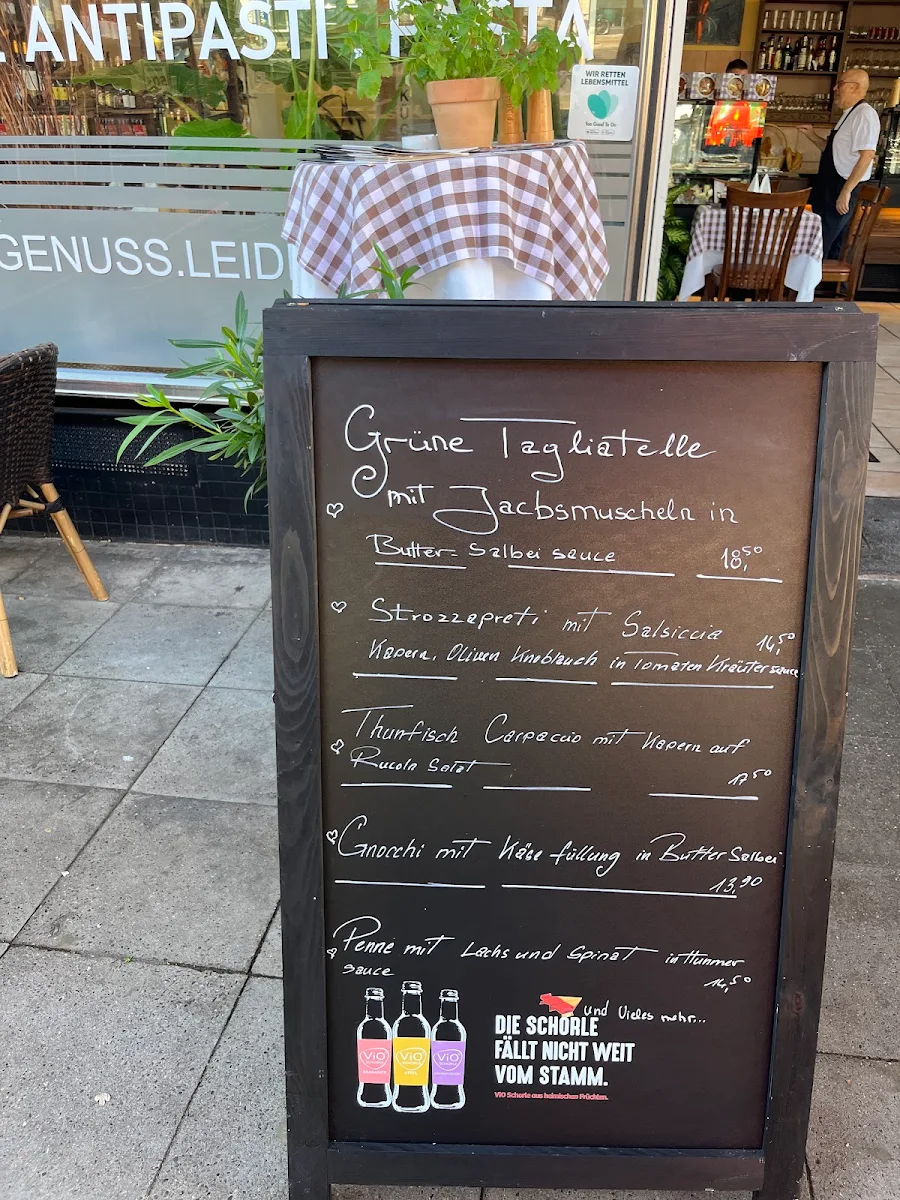 ANTIPASTI . PASTA
WIR RETTEN
LEBENSMITTEL
Too Good To Go
GENUSS.LEID
Grüne Tagliatelle
mit Jacbsmuscheln in
Butter- Salbei sauce 18,50
Strozzapreti mit Salsiccia 14,50
Kapern, Oliven Knoblauch in Tomaten Kräutersauce
Thunfisch Carpaccio mit Kapern auf
Rucola Salat 17,50
Gnocchi mit Käse füllung in Butter Salbei
13,90
Penne mit Lachs und Spinat in Hummer
sauce 14,50
und Vieles mehr...
DIE SCHORLE
FÄLLT NICHT WEIT
VOM STAMM.
ViO Schorle aus heimischen Früchten.
ViO
ViO
ViO